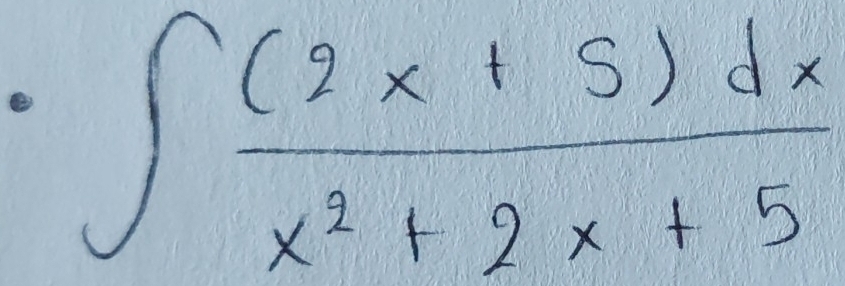 ∫ (2x + 5) dx
x² + 2x + 5